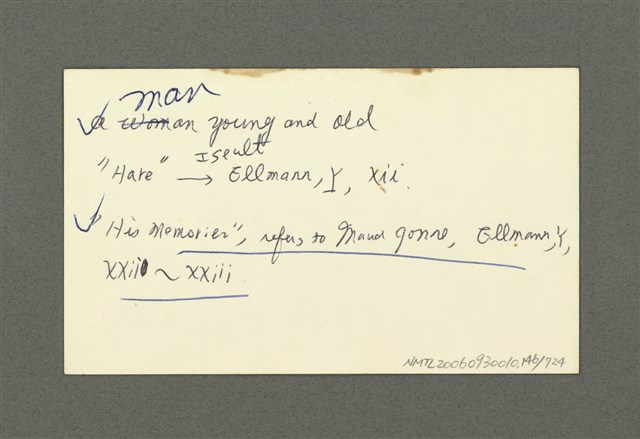 man
a woman young and old
Iseult
"Hare" → Ellmann, Y, xii.
"His Memories", refers to Maud Gonne, Ellmann, Y,
XXii ~ XXiii
NMTL20060930010.146/724